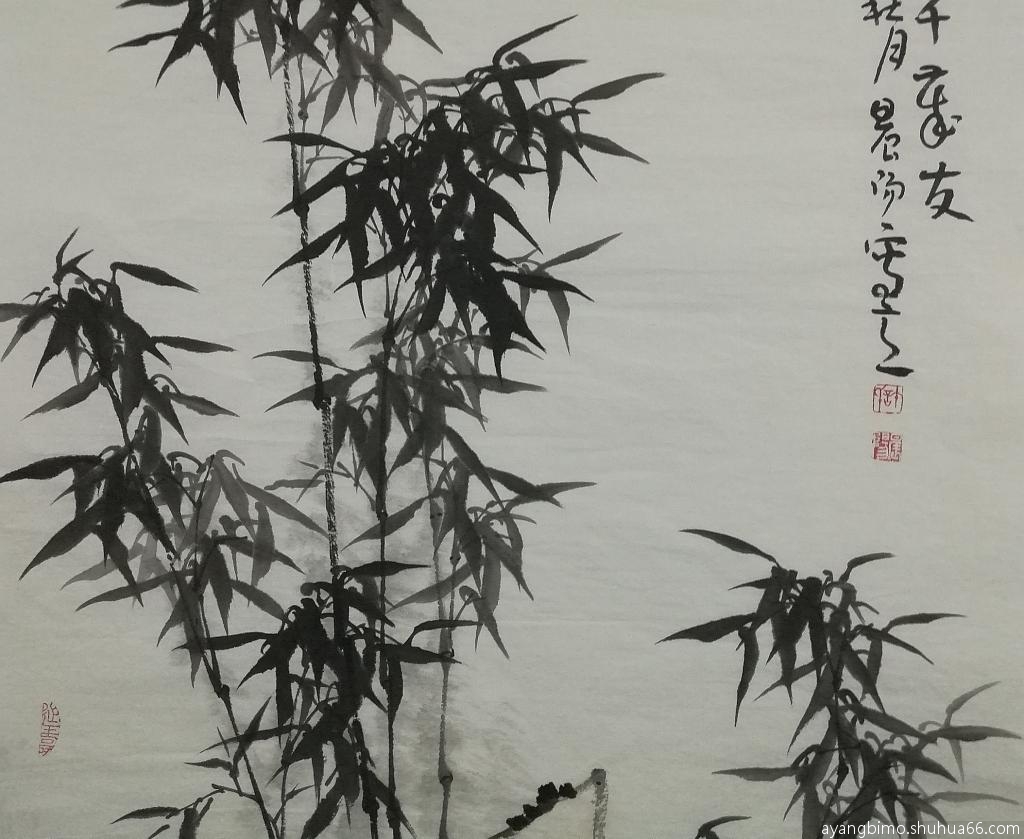 千歲友
秋月晨阳寫之
ayangbimo.shuhua66.com